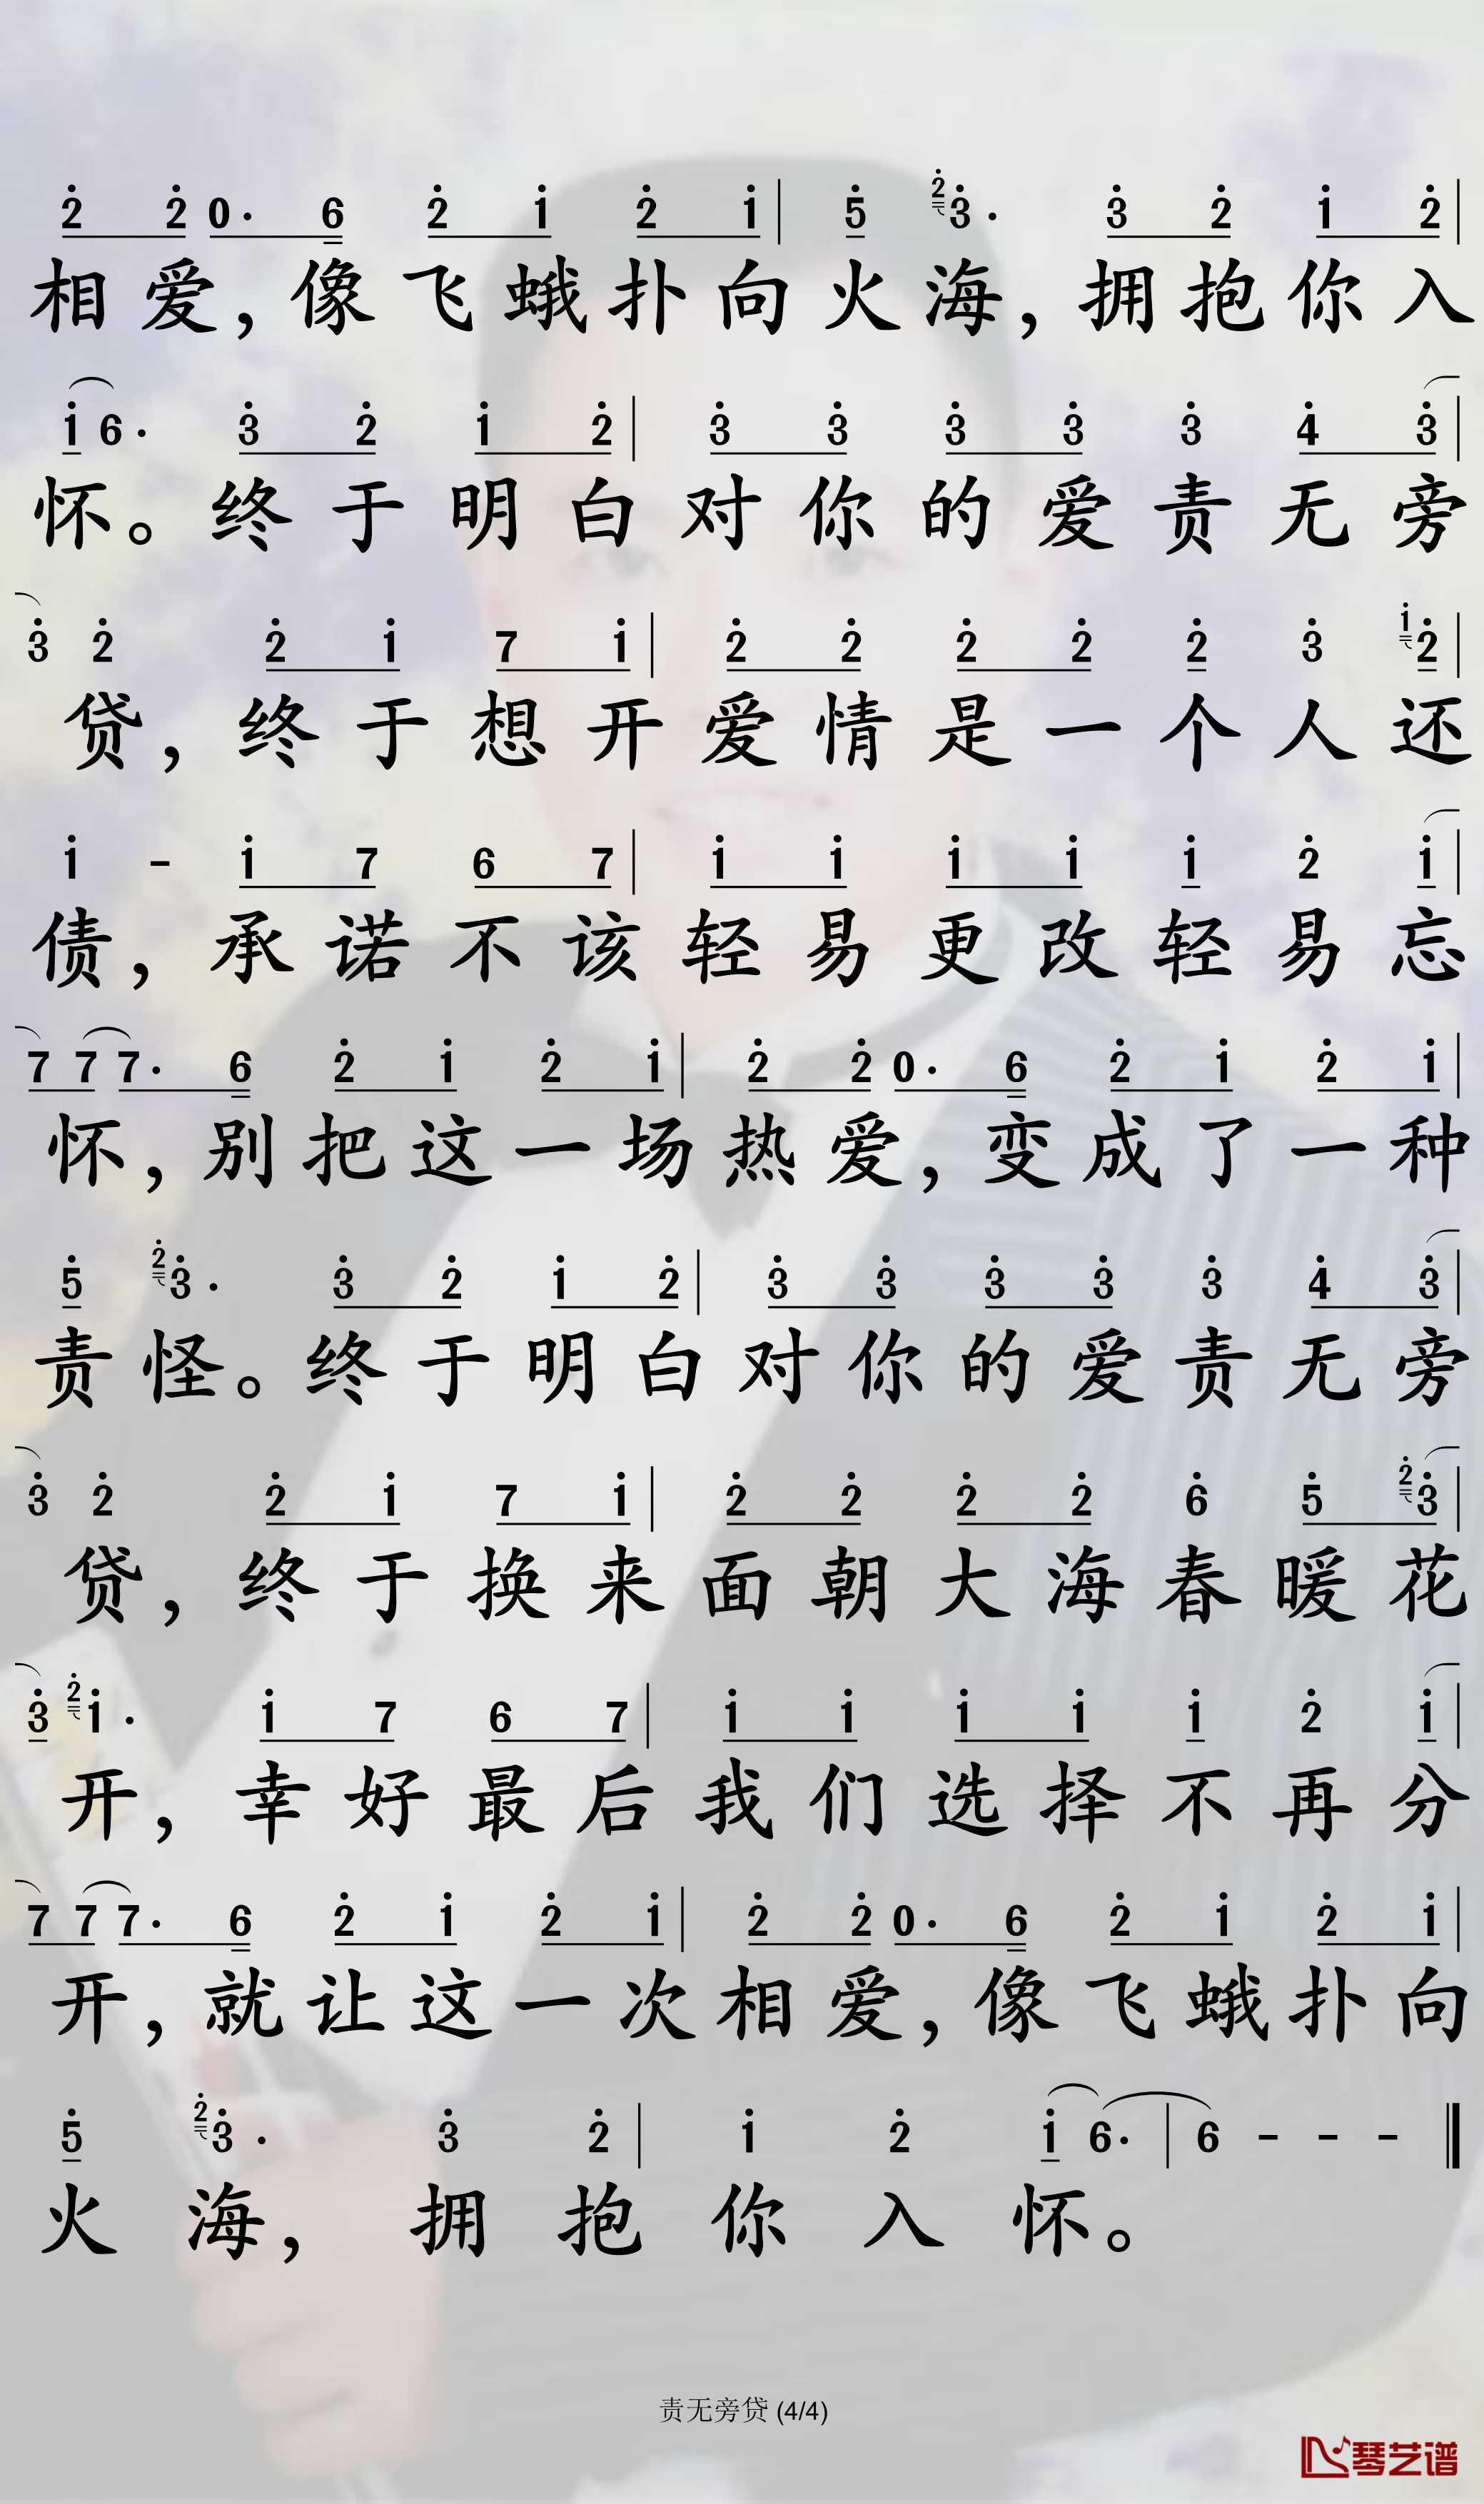 2 2 0· 6 2 1 2 1 | 5 2 3· 3 2 1 2 |
相爱,像飞蛾扑向火海,拥抱你入
1 6· 3 2 1 2 | 3 3 3 3 3 4 3 |
怀。终于明白对你的爱责无旁
3 2 2 1 7 1 | 2 2 2 2 2 3 1 2 |
贷,终于想开爱情是一个人还
1 - 1 7 6 7 | 1 1 1 1 1 2 1 |
债,承诺不该轻易更改轻易忘
7 7 7· 6 2 1 2 1 | 2 2 0· 6 2 1 2 1 |
怀,别把这一场热爱,变成了一种
5 2 3· 3 2 1 2 | 3 3 3 3 3 4 3 |
责怪。终于明白对你的爱责无旁
3 2 2 1 7 1 | 2 2 2 2 6 5 2 3 |
贷,终于换来面朝大海春暖花
3 2 1· 1 7 6 7 | 1 1 1 1 1 2 1 |
开,幸好最后我们选择不再分
7 7 7· 6 2 1 2 1 | 2 2 0· 6 2 1 2 1 |
开,就让这一次相爱,像飞蛾扑向
5 2 3· 3 2 | 1 2 1 6· | 6 - - - ‖
火海,拥抱你入怀。
责无旁贷 (4/4)
琴艺谱